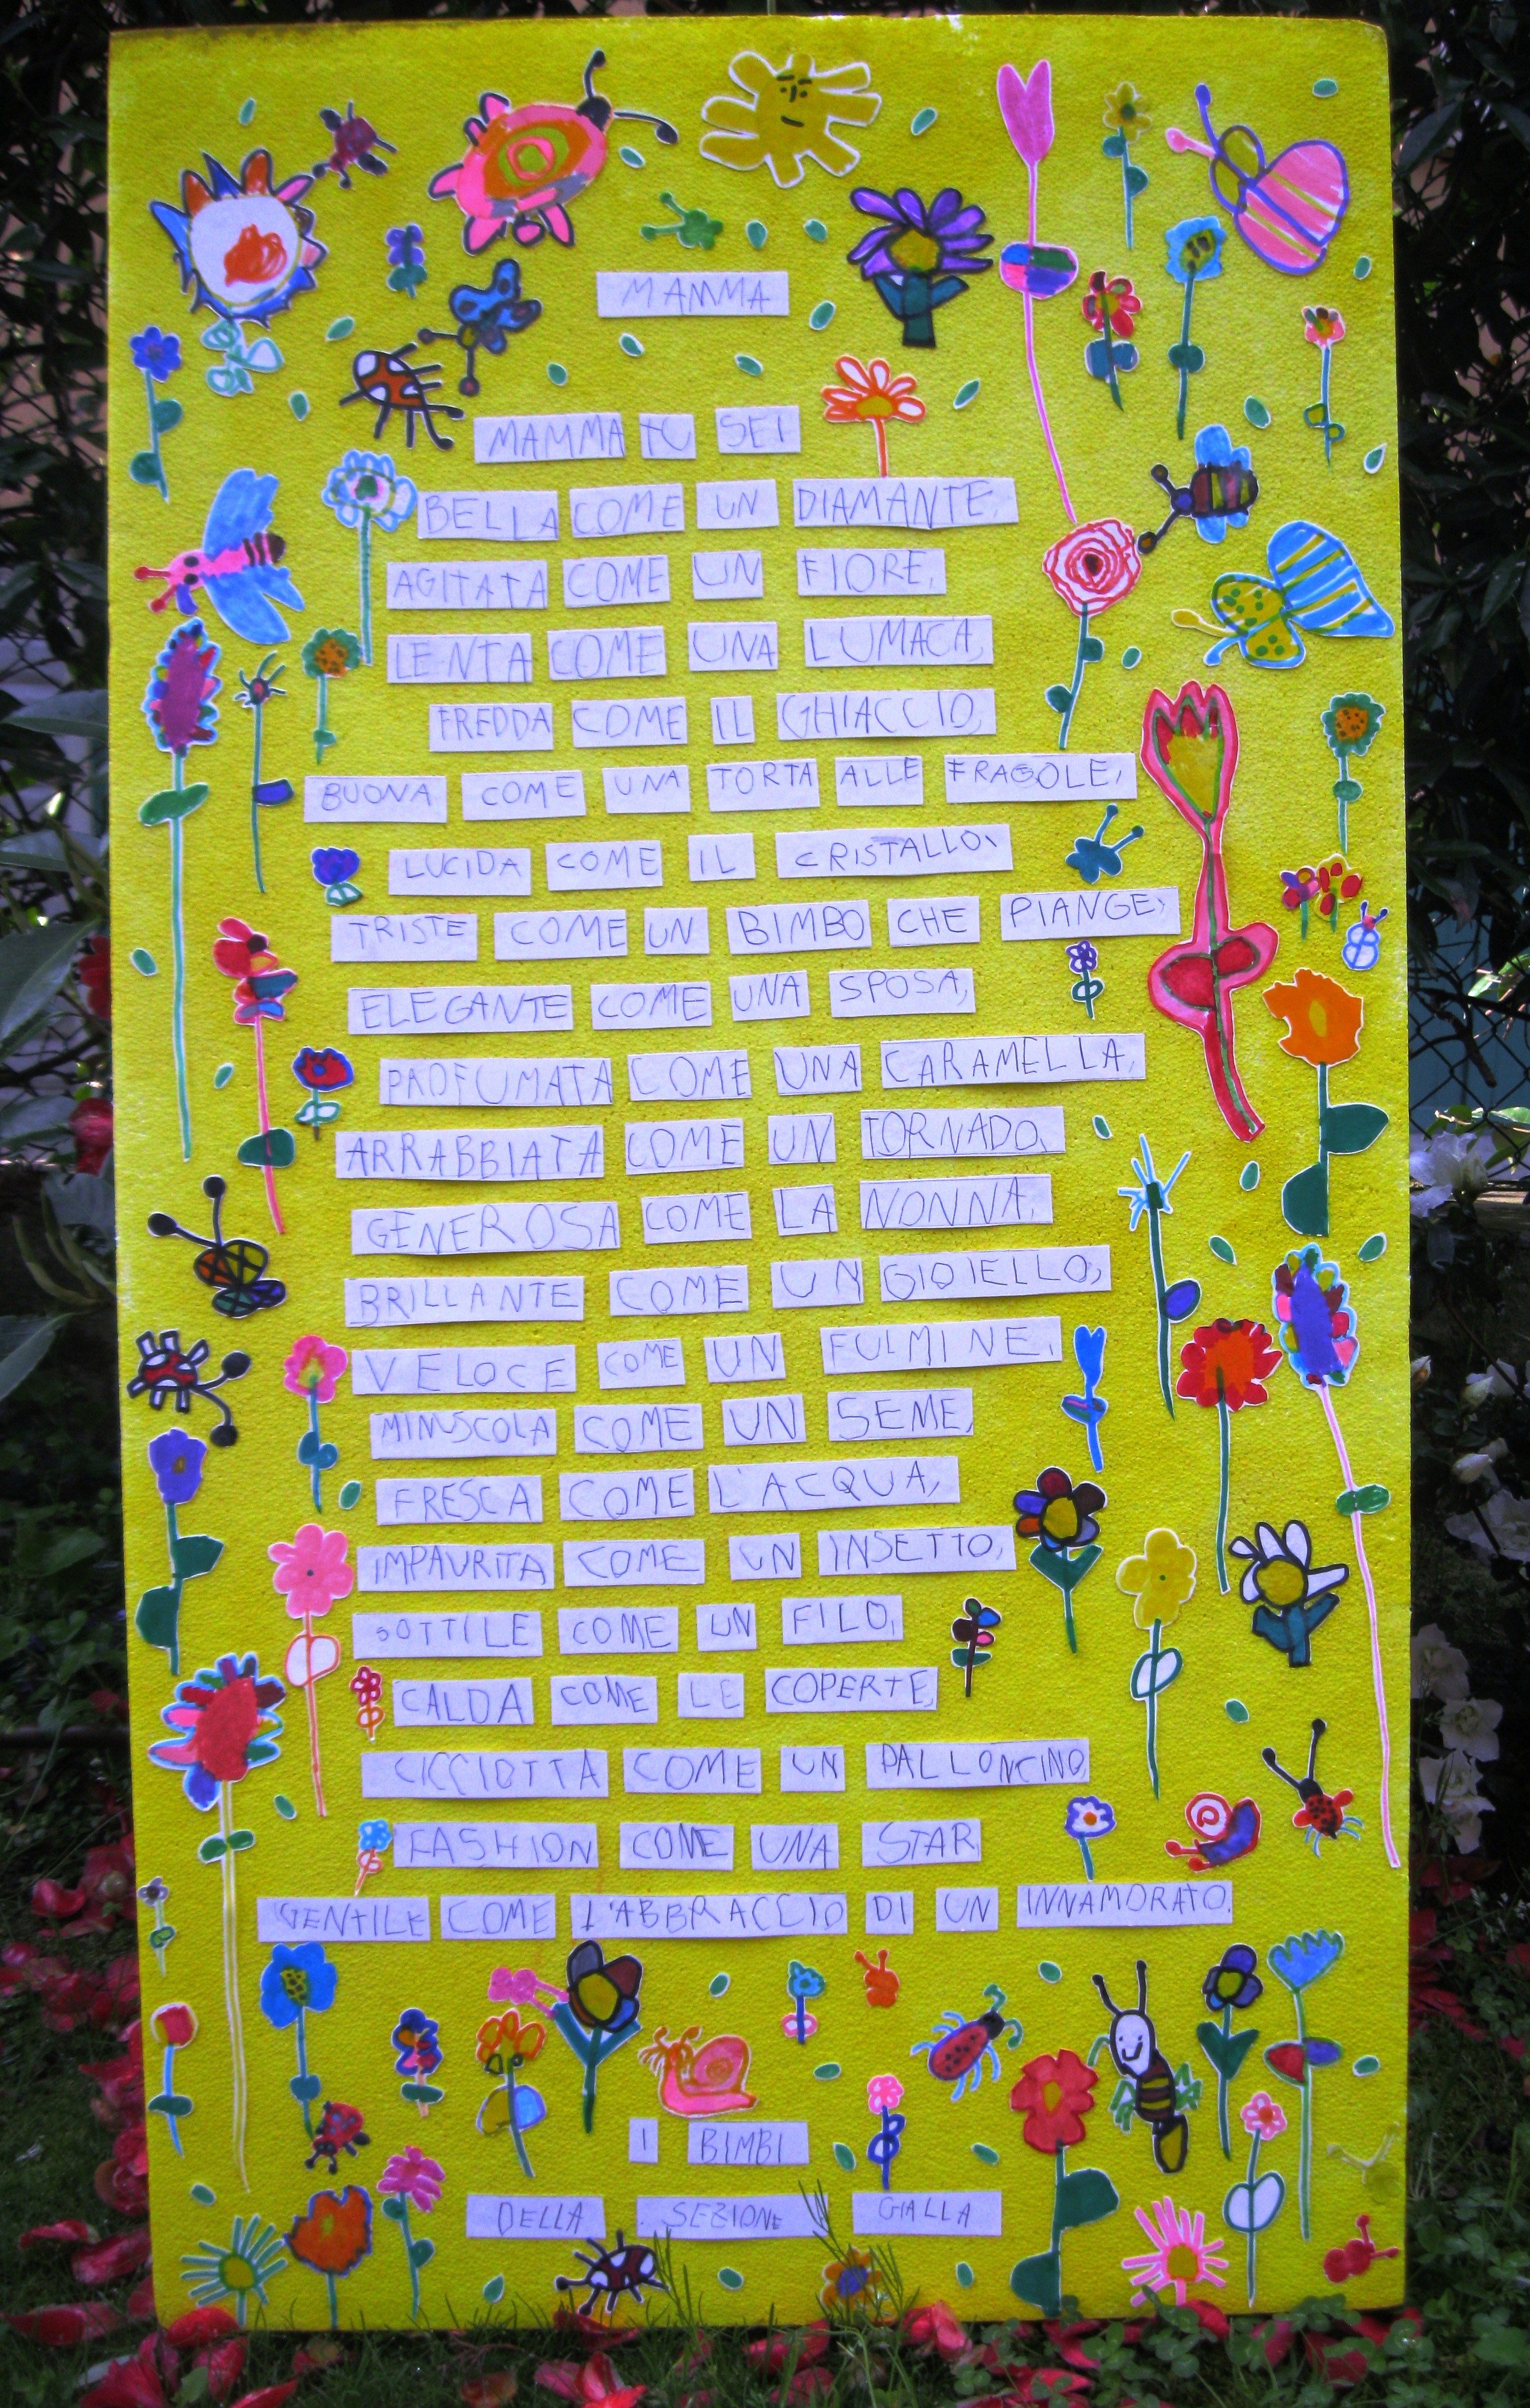 MAMMA
MAMMA TU SEI
BELLA COME UN DIAMANTE,
AGITATA COME UN FIORE,
LENTA COME UNA LUMACA,
FREDDA COME IL GHIACCIO,
BUONA COME UNA TORTA ALLE FRAGOLE,
LUCIDA COME IL CRISTALLO,
TRISTE COME UN BIMBO CHE PIANGE,
ELEGANTE COME UNA SPOSA,
PROFUMATA COME UNA CARAMELLA,
ARRABBIATA COME UN TORNADO,
GENEROSA COME LA NONNA,
BRILLANTE COME UN GIOIELLO,
VELOCE COME UN FULMINE,
MINUSCOLA COME UN SEME,
FRESCA COME L'ACQUA,
IMPAURITA COME UN INSETTO,
SOTTILE COME UN FILO,
CALDA COME LE COPERTE,
CICCIOTTA COME UN PALLONCINO,
FASHION COME UNA STAR
GENTILE COME L'ABBRACCIO DI UN INNAMORATO.
I BIMBI
DELLA SEZIONE GIALLA